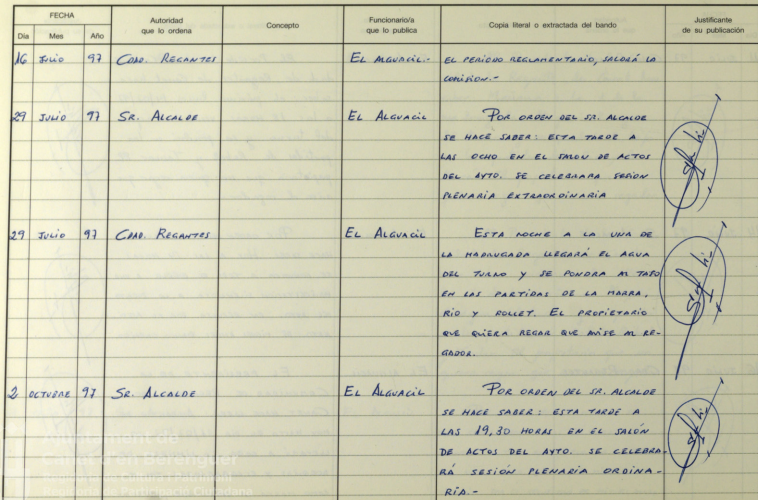 FECHA
Día Mes Año
Autoridad
que lo ordena
Concepto
Funcionario/a
que lo publica
Copia literal o extractada del bando
Justificante
de su publicación
16 JULIO 97 CDAD. REGANTES EL ALGUACIL.- EL PERIODO REGLAMENTARIO, SALDRÁ LA
COMISION.-
29 JULIO 97 SR. ALCALDE EL ALGUACIL POR ORDEN DEL SR. ALCALDE
SE HACE SABER: ESTA TARDE A
LAS OCHO EN EL SALON DE ACTOS
DEL AYTO. SE CELEBRARA SESION
PLENARIA EXTRAORDINARIA
29 JULIO 97 CDAD. REGANTES EL ALGUACIL ESTA NOCHE A LA UNA DE
LA MADRUGADA LLEGARÁ EL AGUA
DEL TURNO Y SE PONDRA AL TAJO
EN LAS PARTIDAS DE LA MARRA,
RIO Y ROLLET. EL PROPIETARIO
QUE QUIERA REGAR QUE AVISE AL RE-
GADOR.
2 OCTUBRE 97 SR. ALCALDE EL ALGUACIL POR ORDEN DEL SR. ALCALDE
SE HACE SABER: ESTA TARDE A
LAS 19,30 HORAS EN EL SALÓN
DE ACTOS DEL AYTO. SE CELEBRA-
RÁ SESIÓN PLENARIA ORDINA-
RIA.-
Ajuntament de
Canet d'en Berenguer
Regidoria de Cultura i Patrimoni
Regidoria de Participació Ciutadana